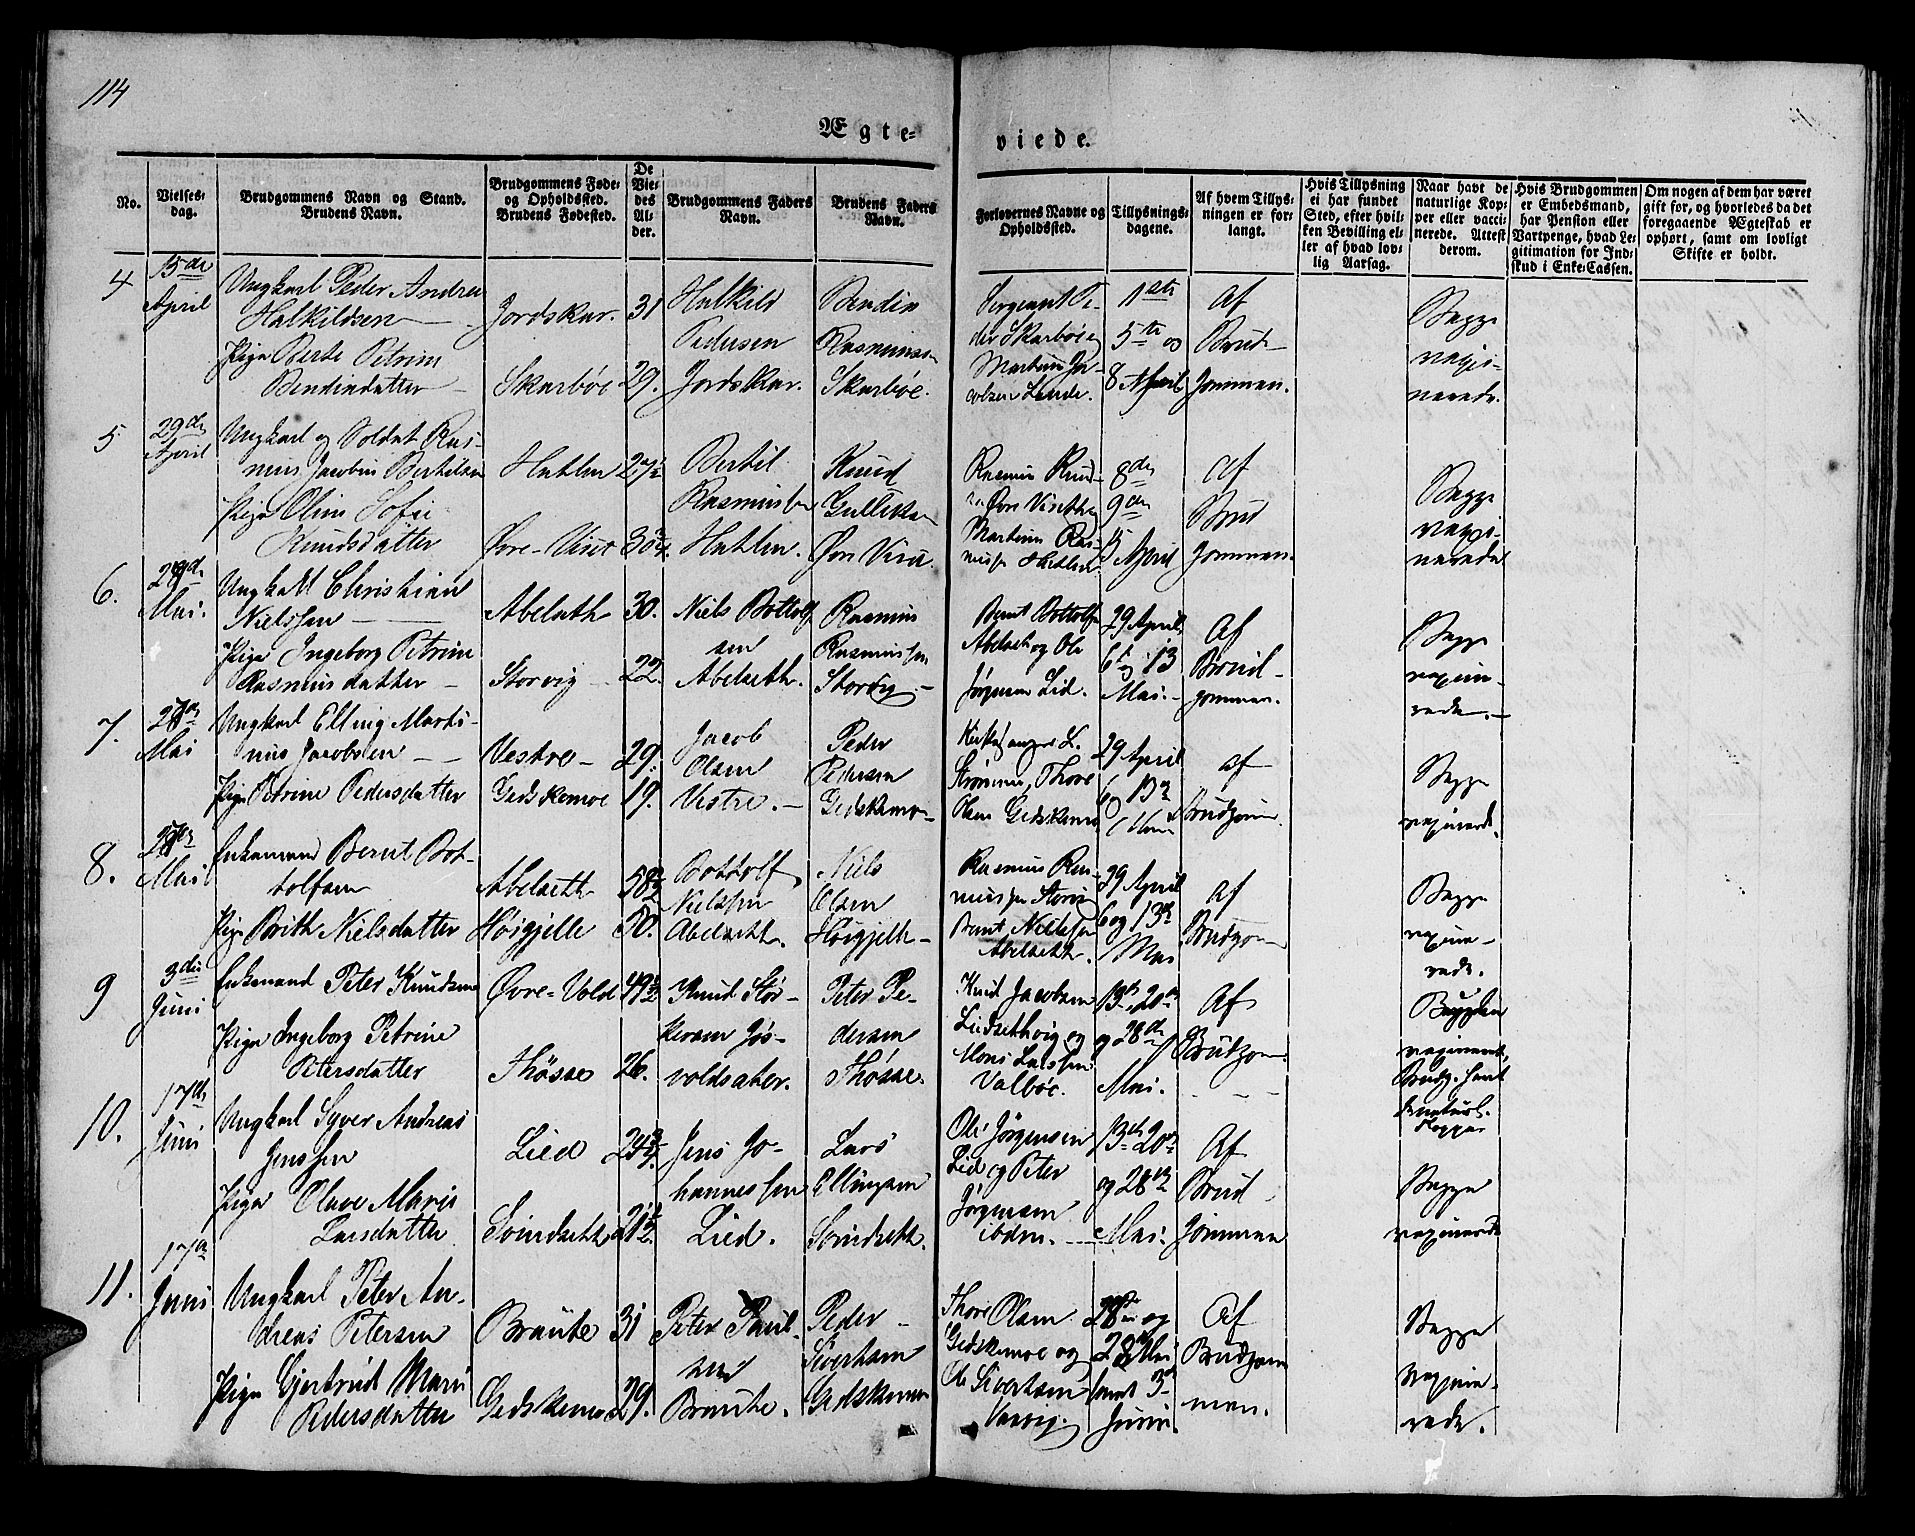 114
Ægte-
viede.
No.
Vielses-
dag.
Brudgommens Navn og Stand.
Brudens Navn.
Brudgommens Føde-
og Opholdssted.
Brudens Fødested.
De
Vie-
des
Al-
der.
Brudgommens Faders
Navn.
Brudens Faders
Navn.
Forlovernes Navne og
Opholdssted.
Tillysnings-
dagene.
Af hvem Tillys-
ningen er for-
langt.
Hvis Tillysning
ei har fundet
Sted, efter hvil-
ken Bevilling el-
ler af hvad lov-
lig Aarsag.
Naar havt de
naturlige Kop-
per eller vacci-
nerede. Attest
derom.
Hvis Brudgommen
er Embedsmand,
har Pension eller
Vartpenge, hvad Le-
gitimation for Ind-
skud i Enke-Cassen.
Om nogen af dem har været
gift for, og hvorledes da det
foregaaende Ægteskab er
ophørt, samt om lovligt
Skifte er holdt.
4
15de
April
Ungkarl Peder Andrea
Halkildsen
Pige Berte Petrine
Bendixdatter
Jordskar.
Skarbøe
31
29.
Halkild
Pedersen
Jordskar.
Rasmuss
Skarbøe.
Sergeant Pe-
der Skarbøe og
Lande.
11te
5te og
8 April
Af
Brud-
gommen.
Begge
naxi-
nerede.
5
29de
April
Ungkarl og Soldat Ras-
mus Jacobus Bertilsen
Pige Oline Sofie
Knudsdatter
Hatlen
Øvre-Viset
Bertil
Rasmussen
Hatlen.
Knud
Gulliksen
Rasmus Knud-
Martinus Ras-
Hatlen.
8de
9de
15 April
af
Brud
gommen.
Begge
naxi-
nerede
6.
Mai.
Ungkarl Christian
Nielssen
Pige Ingeborg Petrine
Rasmusdatter
Abelseth
Storvig
30.
22.
Niels Bottolf
sen
Abelseth.
Rasmus
Rasmussen
Storvig.
Bernt Bottolfs
Abelseth og Ole
Jørgensen Lid.
29 April
6t og 13
Mai.
Af
Brud-
gommen.
Begge
naxine-
rede.
7.
Mai
Ungkarl Elling Marti-
nus Jacobsen
Pige Petrine Pedersdatter
Vestre
Gedskemoe
29.
19.
Jacob
Olsen
Vestre.
Peder
Pedersen
Gedskemo
Kirkesanger L.
Strømme, Thore
Olsen Gedskemo
29 April
6 13de
af
Brudgom
Begge
naxinerede.
8.
Mai
Enkemand Bernt Bot-
tolfsen
Pige Brith Nielsdatter
Abelseth
Høigjelle
50.
Bottolf
Nielssen
Abelseth.
Niels
Olsen
Høigjelle
Rasmus Ras-
mussen Storvig
Bernt Nielssen
Abelseth.
29 April
6 og 13de
Mai
af
Brudgom
Begge
naxine-
rede.
9
3die
Juni
Enkemand Peter Knudsen
Pige Ingeborg Petrine
Petersdatter
Øvre-Vold
Thøsse
26.
Knud Stør-
kersen Jøs-
voldsæter.
Peter Pe-
dersen
Thøsse.
Knud Jacobsen
Lidsethvig og
Mons Larssen
Valbøe.
13de 20de
og 28de
Mai.
Af
Brudgom
Bruden
naxineret,
Brudg. havt
de naturl.
Kopper
10.
17de
Juni
Ungkarl Syver Andreas
Jenssen
Pige Olave Marie
Larsdatter
Lied
Soindseth
Jens Jo-
hannessen
Lied.
Lars
Ellingsen
Soindseth.
Ole Jørgensen
Lid og Peter
Jørgensen
ibdm.
13de 20de
og 28de
Mai.
Af
Brud
gommen
Begge
naxinerede
11.
17de
Juni
Ungkarl Peter An-
dreas Petersen
Pige Gjertrud Marie
Pedersdatter
Braute
Gedskemoe
31
29.
Peter Paul-
sen
Braute.
Peder
Sivertsen
Gedskemoe
Thore Olsen
Gedskemoe og
Ole Sivertsen
20de og
28 Mai
samt 3die
Juni.
Af
Brudgom
men.
Begge
naxine-
rede.